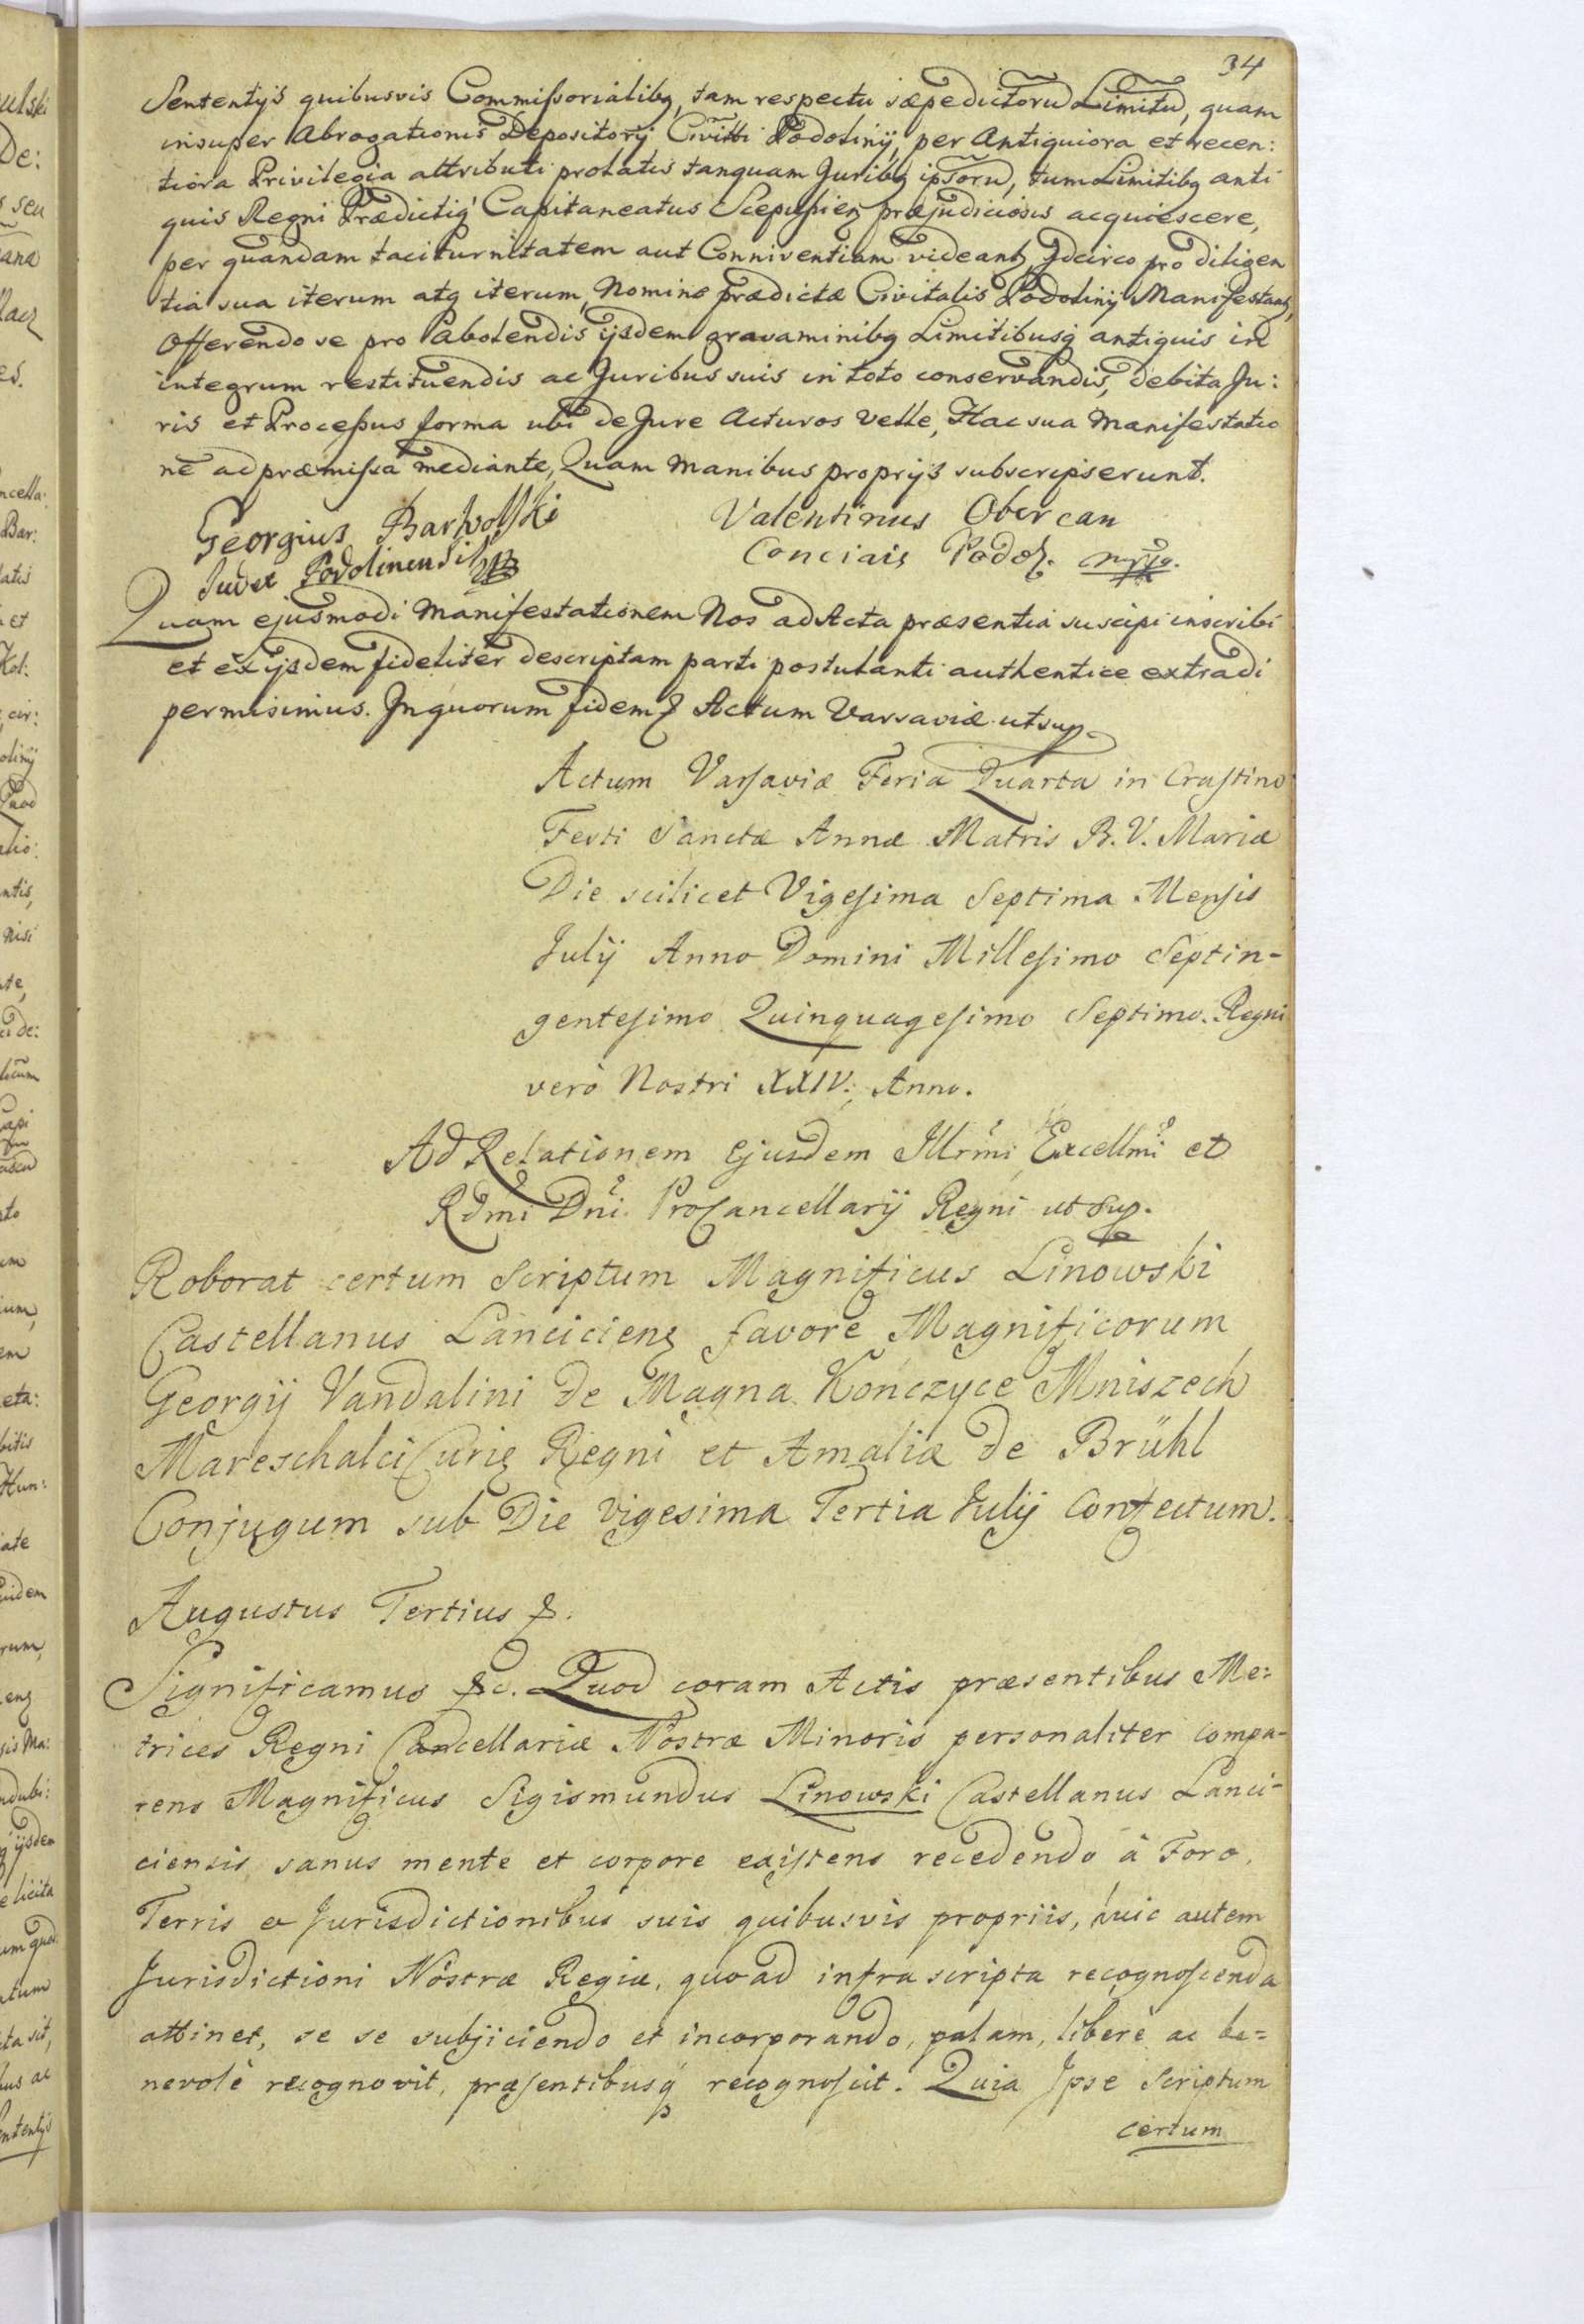 34
Sententijs quibusvis Commissorialibq, tam respectu sæpedictorũ Limitũ, quam
insuper Abrogationis Depositorij Civitti Podolinij, per Antiquiora et recen:
tiora Privilegia attributi prolatis tanquam Juribq ipsorũ, tum Limitibq anti
quis Regni Prædictiq Capitaneatus Scepusieñ præjudiciosis acquiescere,
per quandam taciturnitatem aut Conniventiam videant, Jdcirco pro diligen
tia sua iterum atq iterum, Nomine prædictæ Civitatis Podolinij Manifestant,
Offerendo se pro abolendis ijsdem gravaminibq Limitibusq antiquis in
integrum restituendis ac Juribus suis in toto conservandis, debita Ju:
ris et Processus forma ubi de Jure Acturos velle, Hac sua Manifestatio
ne ad præmissa mediante, Quam manibus proprijs subscripserunt.
Georgius
Judex Podolinensis
Valentinus Obercan
Podol. mpp.
Quam ejusmodi Manifestationem Nos ad Acta præsentia suscipi inscribi
et ex ijsdem fideliter descriptam parti postulanti authentice extradi
permisimus. Jn quorum fidem & Actum Varsaviæ ut sup.
Actum Varsaviæ Feria Quarta in Crastino
Festi Sanctæ Annæ Matris B. V. Mariæ
Die scilicet Vigesima Septima Mensis
Julij Anno Domini Millesimo Septin-
gentesimo Quinquagesimo Septimo. Regni
verò Nostri XXIV. Anno.
Ad Relationem Ejusdem Jllrmi Excellmi et
Rdmi Dni ProCancellarij Regni ut sup.
Roborat certum Scriptum Magnificus Linowski
Castellanus Lancicienς favore Magnificorum
Georgij Vandalini de Magna Kończyce Mniszech
Mareschalci Curię Regni et Amaliæ de Brühl
Conjugum sub Die vigesima Tertia Julij Confectum.
Augustus Tertius &.
Significamus &c. Quod coram Actis præsentibus Me:
trices Regni Cancellariæ Nostræ Minoris personaliter compa-
rens Magnificus Sigismundus Linowski Castellanus Lanci-
ciensis, sanus mente et corpore existens recedendo à Foro,
Terris ex Jurisdictionibus suis quibusvis propriis, huic autem
Jurisdictioni Nostræ Regiæ, quoad infra scripta recognoscenda
attinet, se se subjiciendo et incorporando, palam, liberè ac be=
nevolè recognovit, præsentibusq recognoscit. Quia Jpse Scriptum
certum